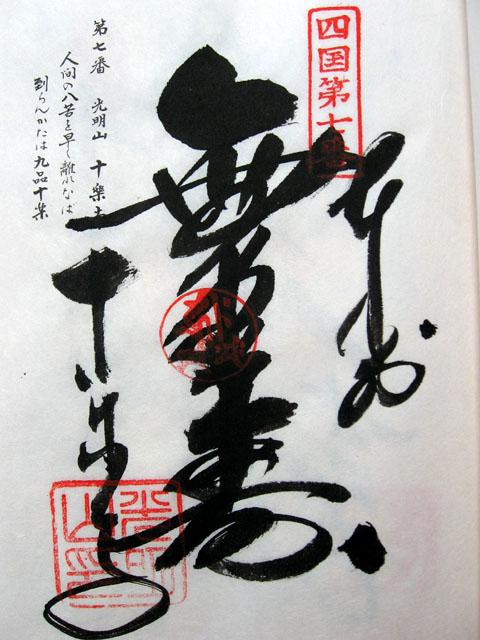 四国第七番
奉納
無量寿
十楽寺
第七番 光明山 十楽寺
人間の八苦を早く離れなば
到らんかたは九品十楽